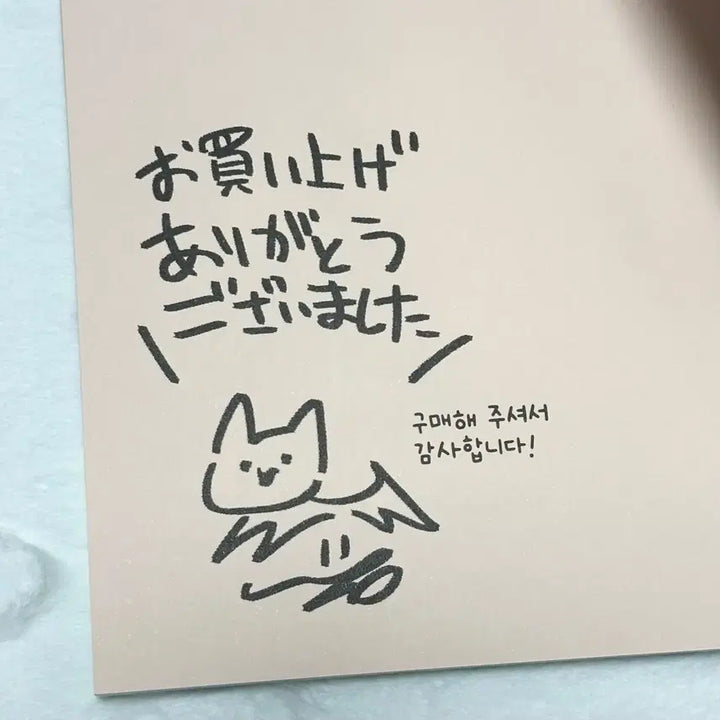 お買い上げ
ありがとう
ございました
구매해 주셔서
감사합니다!